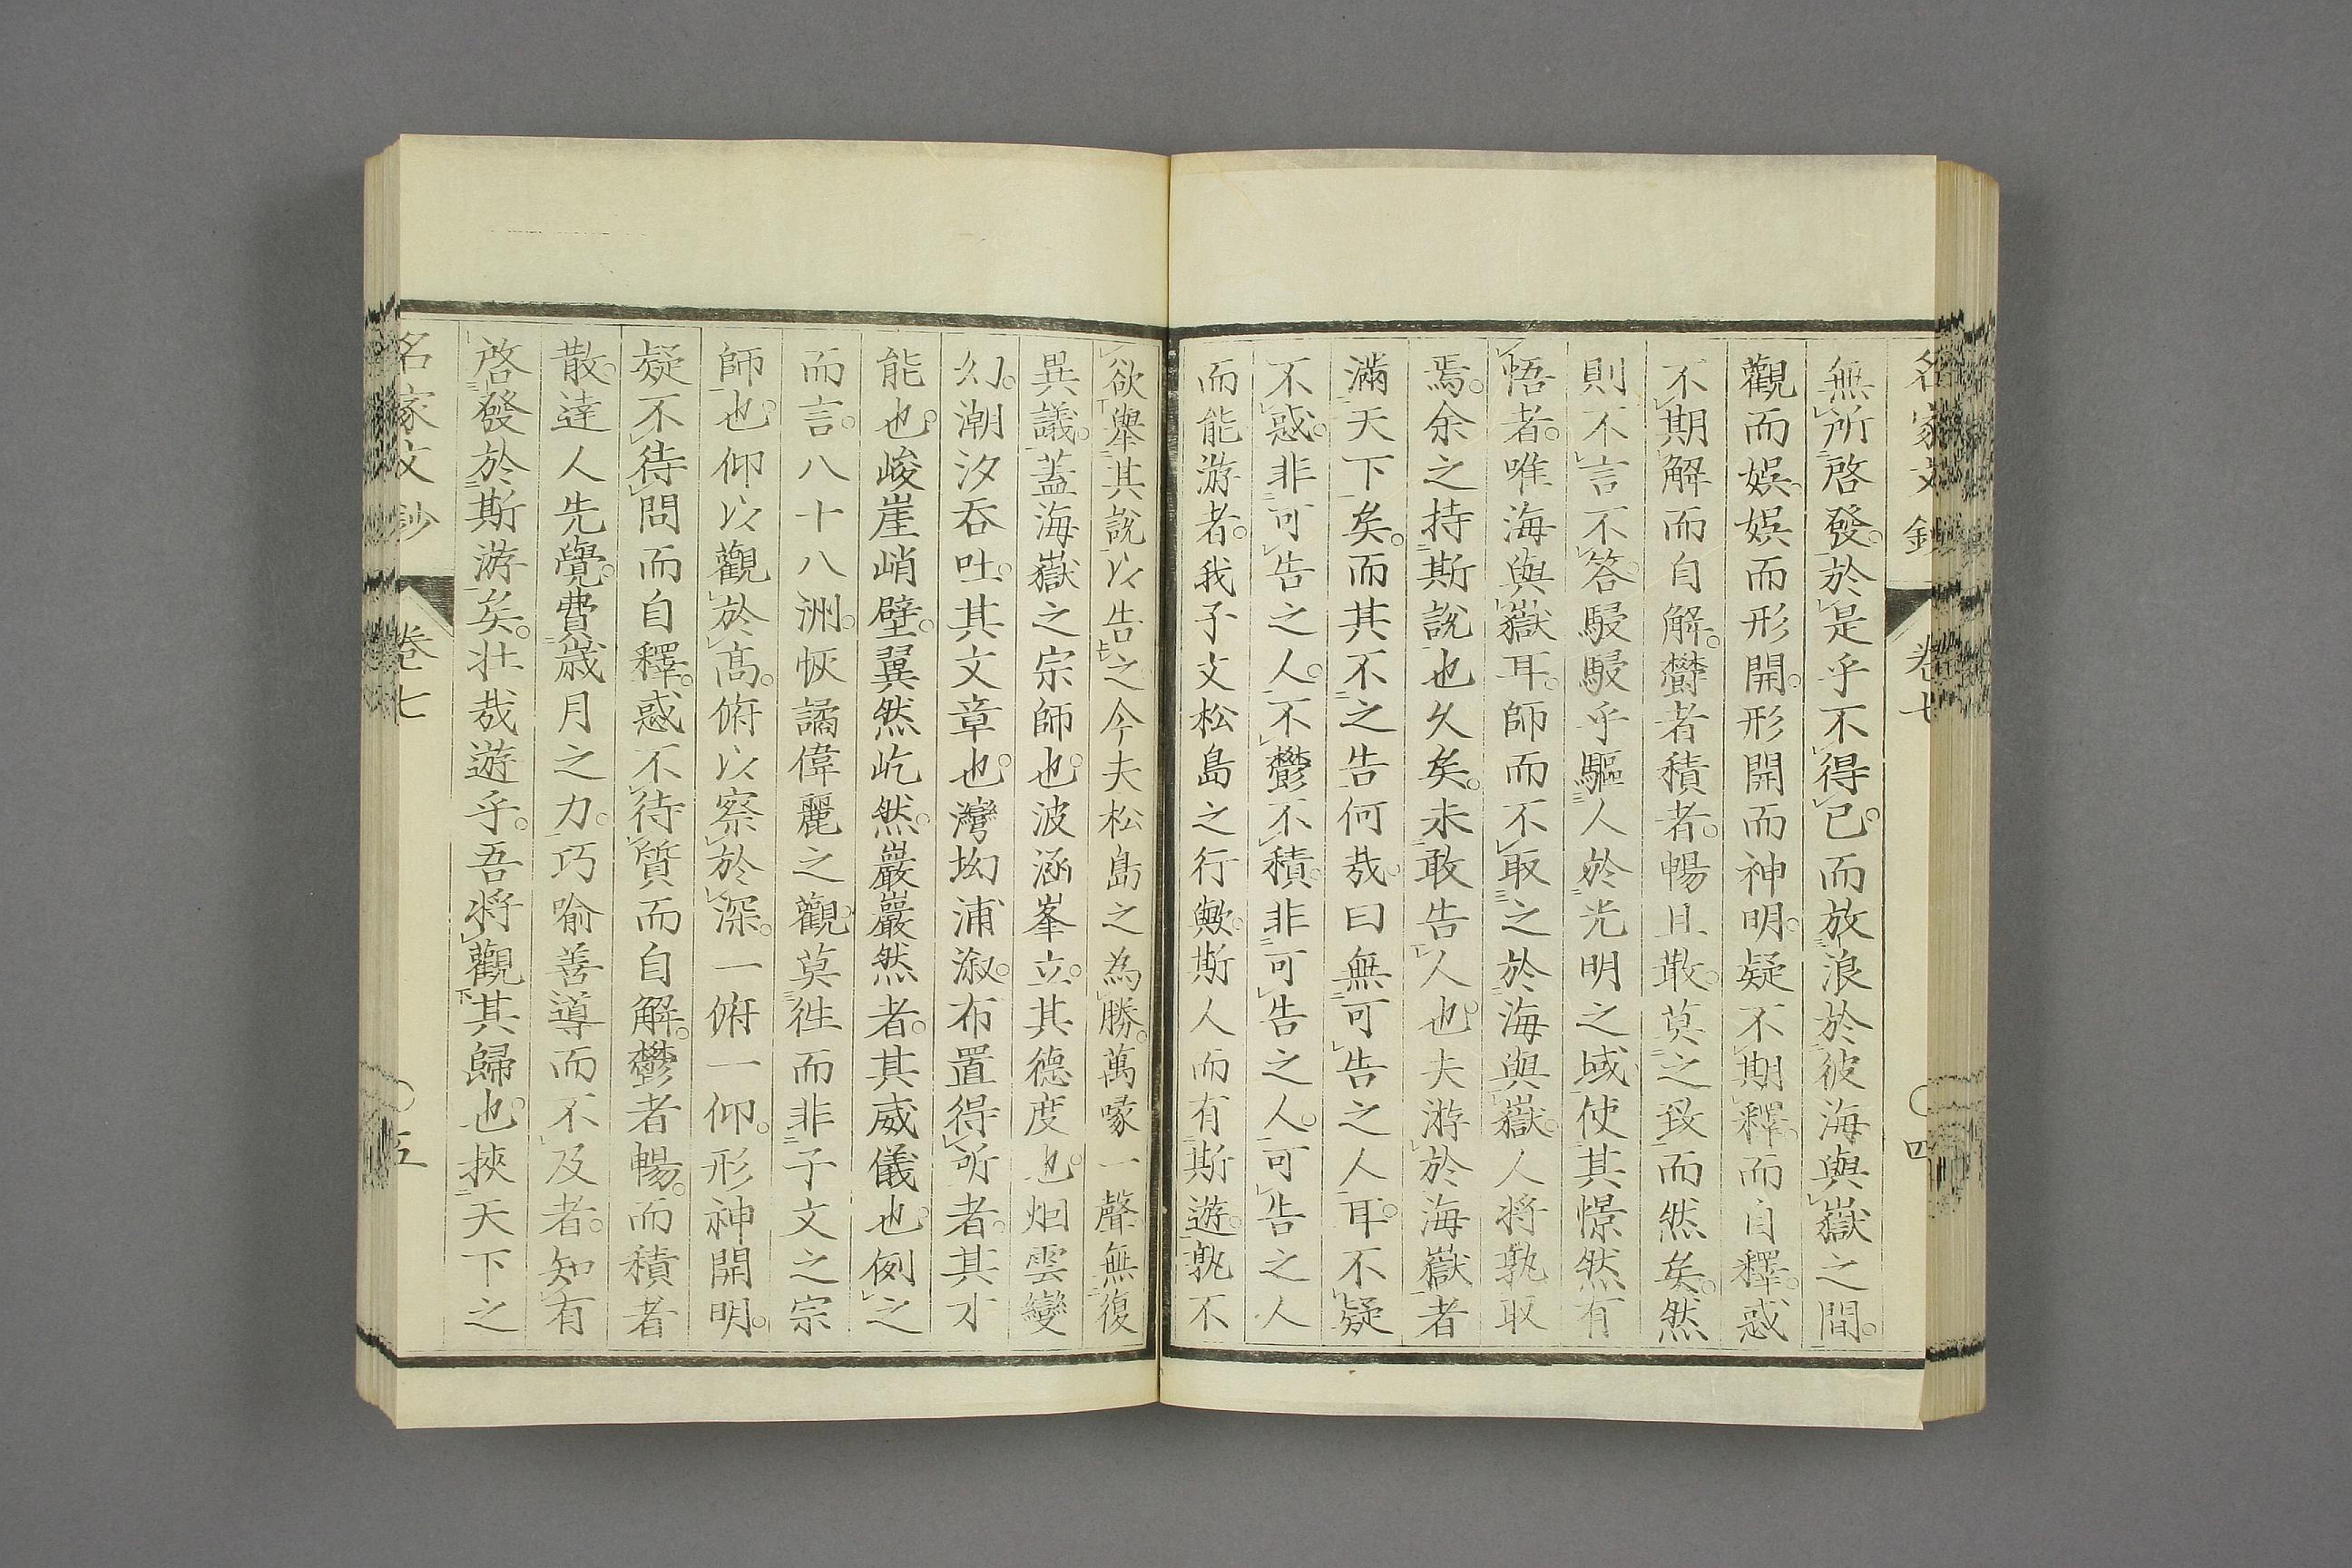 名家文鈔 卷七 〇四
無所啓發。於是乎不得已。而放浪於彼海與嶽之間。
觀而娯。娯而形開。形開而神明。疑不期釋。而自釋。惑
不期解而自解。鬱者積者。暢且散。莫之致而然矣。然
則不言不答。駸駸乎驅人於光明之域。使其憬然有
悟者。唯海與嶽耳。師而不取之於海與嶽。人將孰取
焉。余之持斯說也久矣。未敢告人也。夫游於海嶽者
滿天下矣。而其不之告何哉。曰無可告之人耳。不疑
不惑。非可告之人。不鬱不積。非可告之人。可告之人
而能游者。我子文松島之行歟。斯人而有斯遊。孰不
欲擧其說以告之今夫松島之為勝。萬喙一聲無復
異議。蓋海嶽之宗師也。波涵峯立。其德度也。烟雲變
幻。潮汐吞吐。其文章也。灣坳浦漵。布置得所者。其才
能也。峻崖峭壁。翼然屹然。巖巖然者。其威儀也。例之
而言。八十八洲。恢譎偉麗之觀。莫徃而非子文之宗
師也。仰以觀於髙。俯以察於深。一俯一仰。形神開明。
疑不待問而自釋。惑不待質而自解。鬱者暢。而積者
散。達人先覺。費歳月之力。巧喻善導而不及者。知有
啓發於斯游矣。壮哉遊乎。吾将觀其歸也。挾天下之
名家文鈔 卷七 〇五